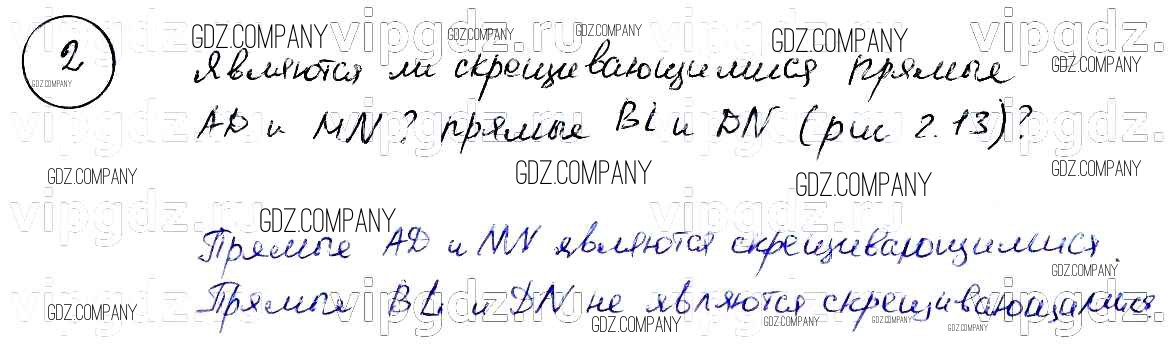 2
Являются ли скрещивающимися прямые
AD и MN? прямые BL и DN (рис 2.13)?
Прямые AD и MN являются скрещивающимися.
Прямые BL и DN не являются скрещивающимися.
vipgdz.ru
GDZ.COMPANY